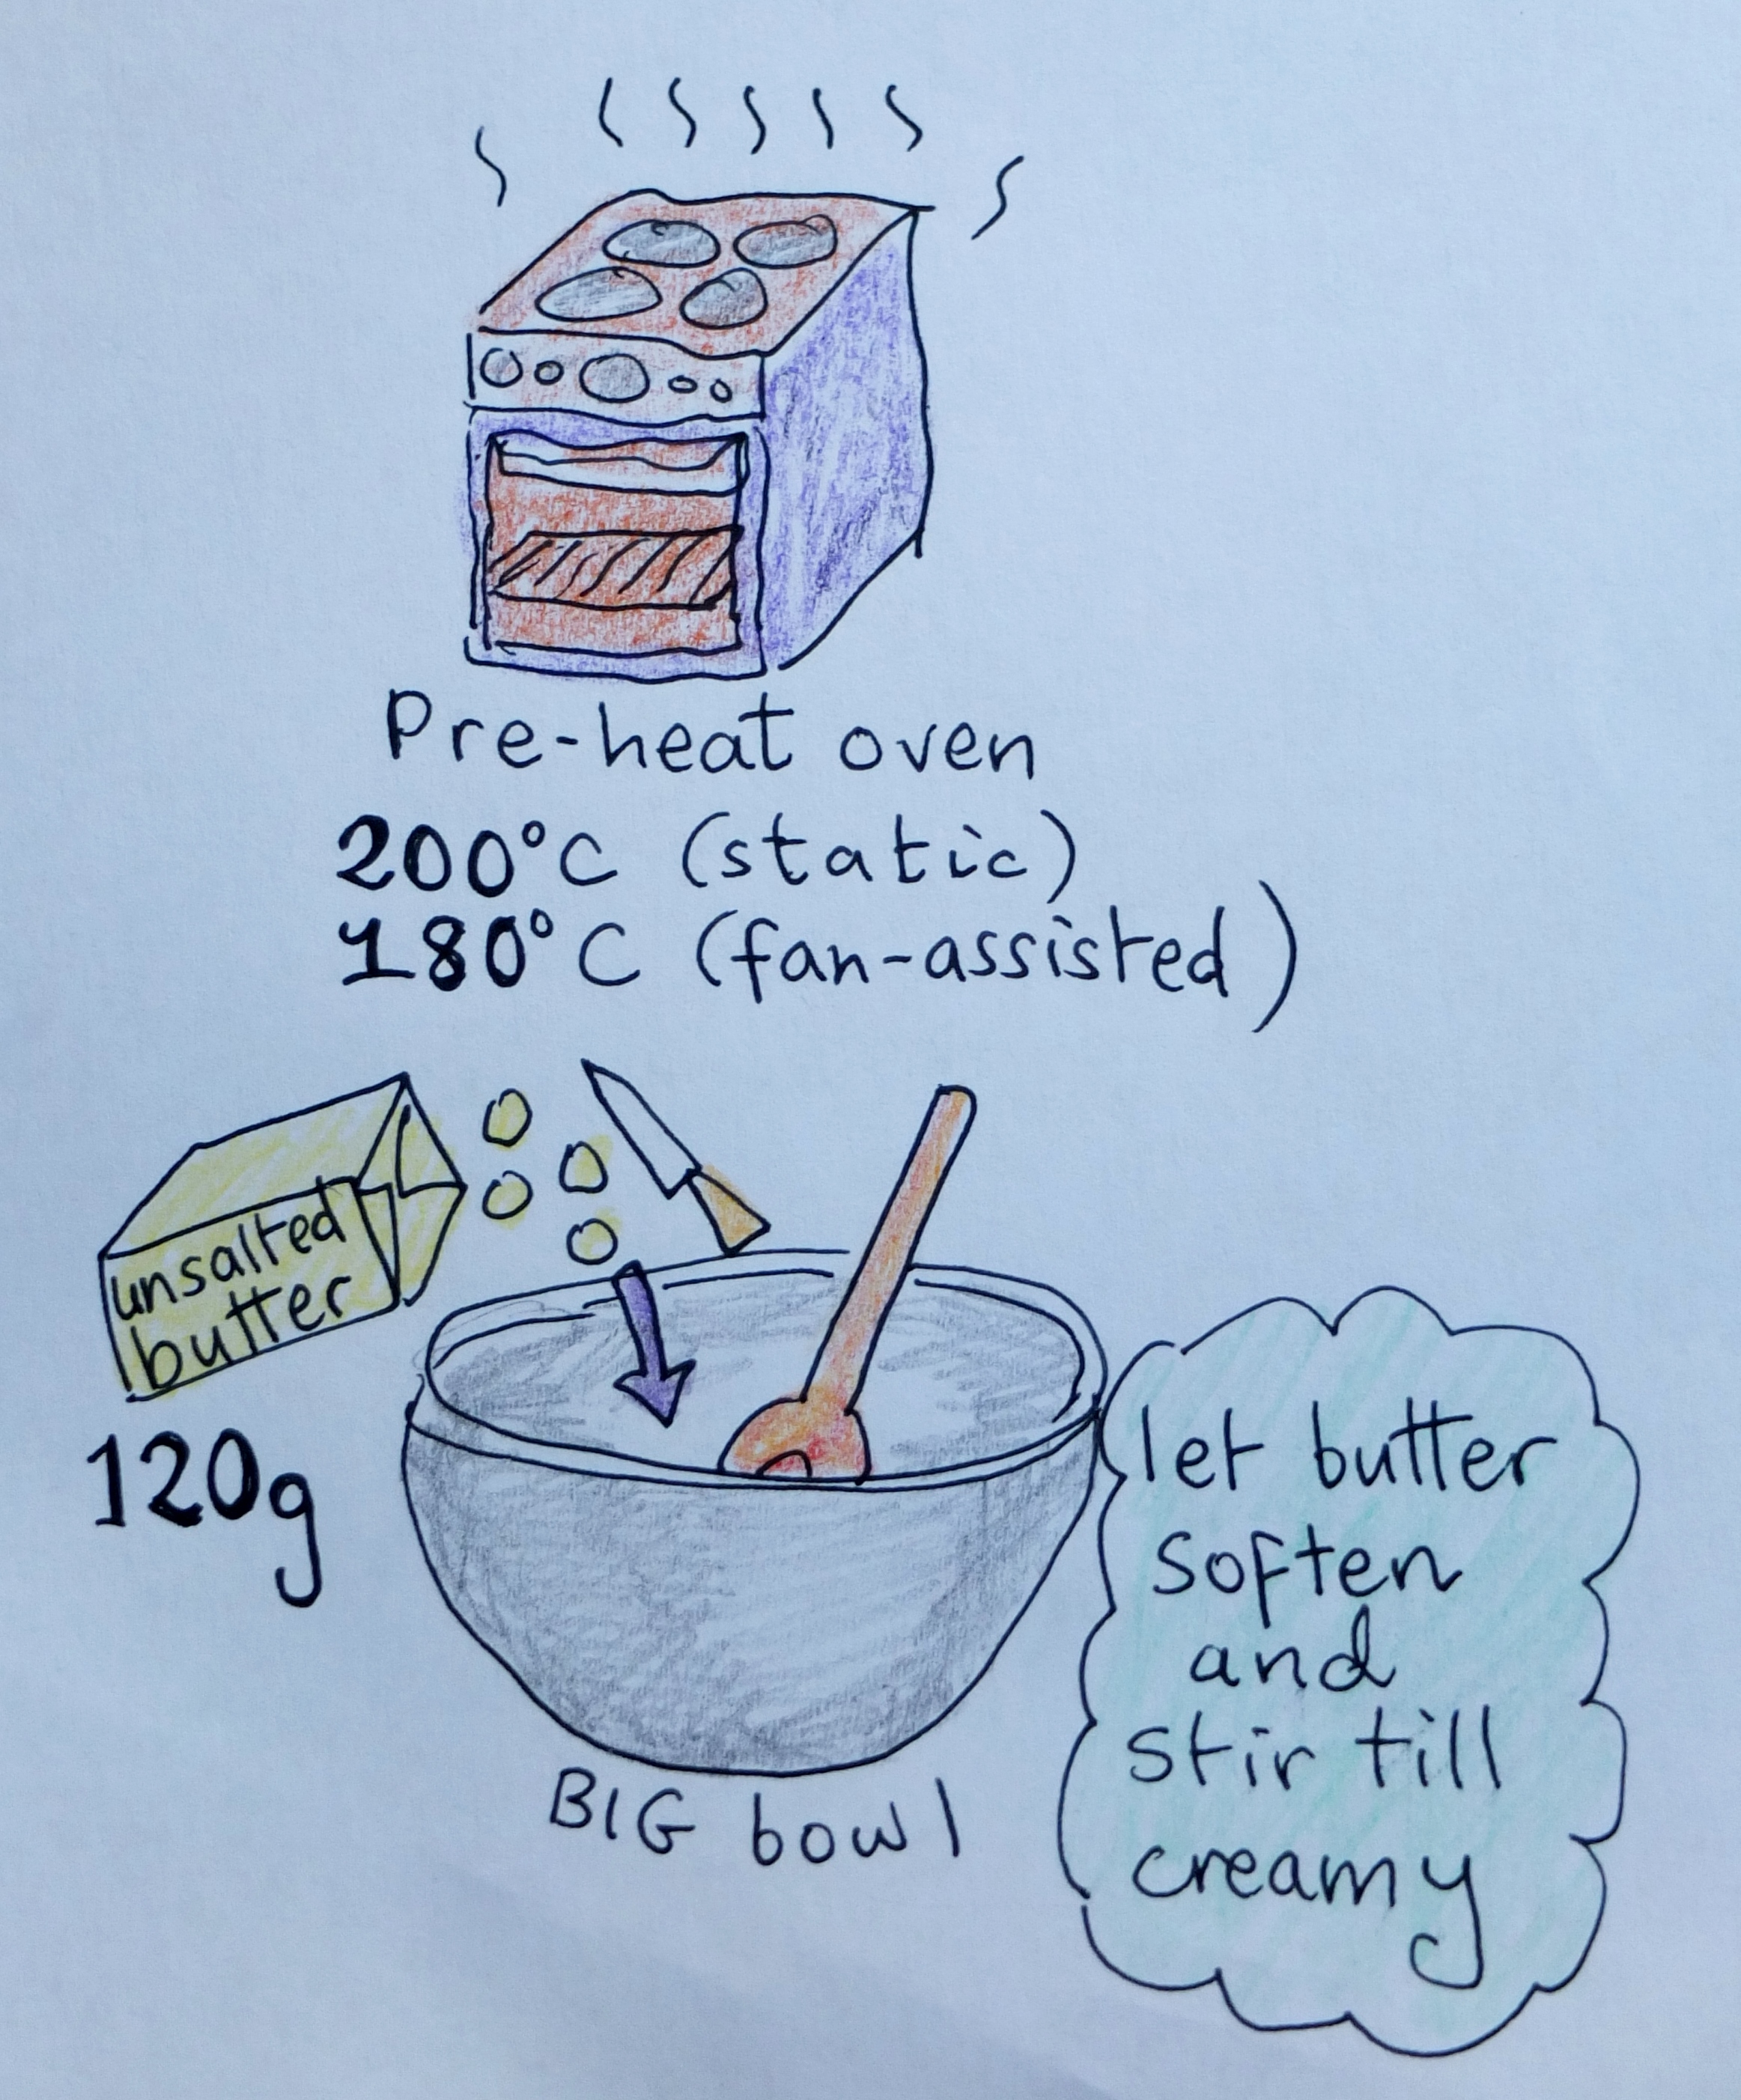 Pre-heat oven
200°C (static)
180°C (fan-assisted)
unsalted
butter
120g
BIG bowl
let butter
soften
and
stir till
creamy